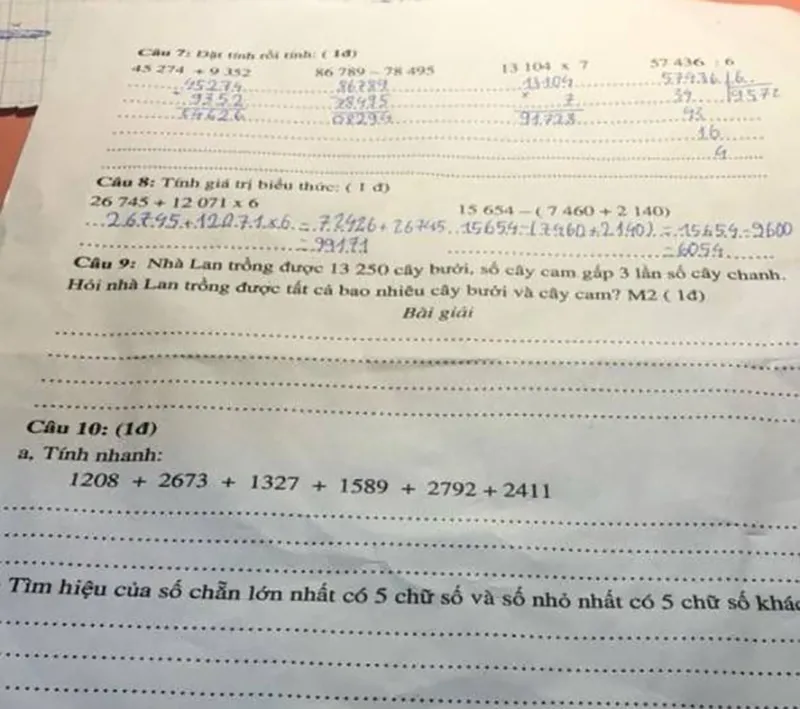 Câu 7: Đặt tính rồi tính: ( 1đ)
45 274 + 9 352 86 789 – 78 495 13 104 x 7 57 436 : 6
45274 86789 13104 57436 6
9352 78495 x 7 34 9572
54626 08294 91728 43
16
4
Câu 8: Tính giá trị biểu thức: ( 1 đ)
26 745 + 12 071 x 6 15 654 – ( 7 460 + 2 140)
26745+12071x6 = 72426 + 26745 15654-(7460+2140) = 15654-9600
= 99171 = 6054
Câu 9: Nhà Lan trồng được 13 250 cây bưởi, số cây cam gấp 3 lần số cây chanh.
Hỏi nhà Lan trồng được tất cả bao nhiêu cây bưởi và cây cam? M2 ( 1đ)
Bài giải
Câu 10: (1đ)
a, Tính nhanh:
1208 + 2673 + 1327 + 1589 + 2792 + 2411
Tìm hiệu của số chẵn lớn nhất có 5 chữ số và số nhỏ nhất có 5 chữ số